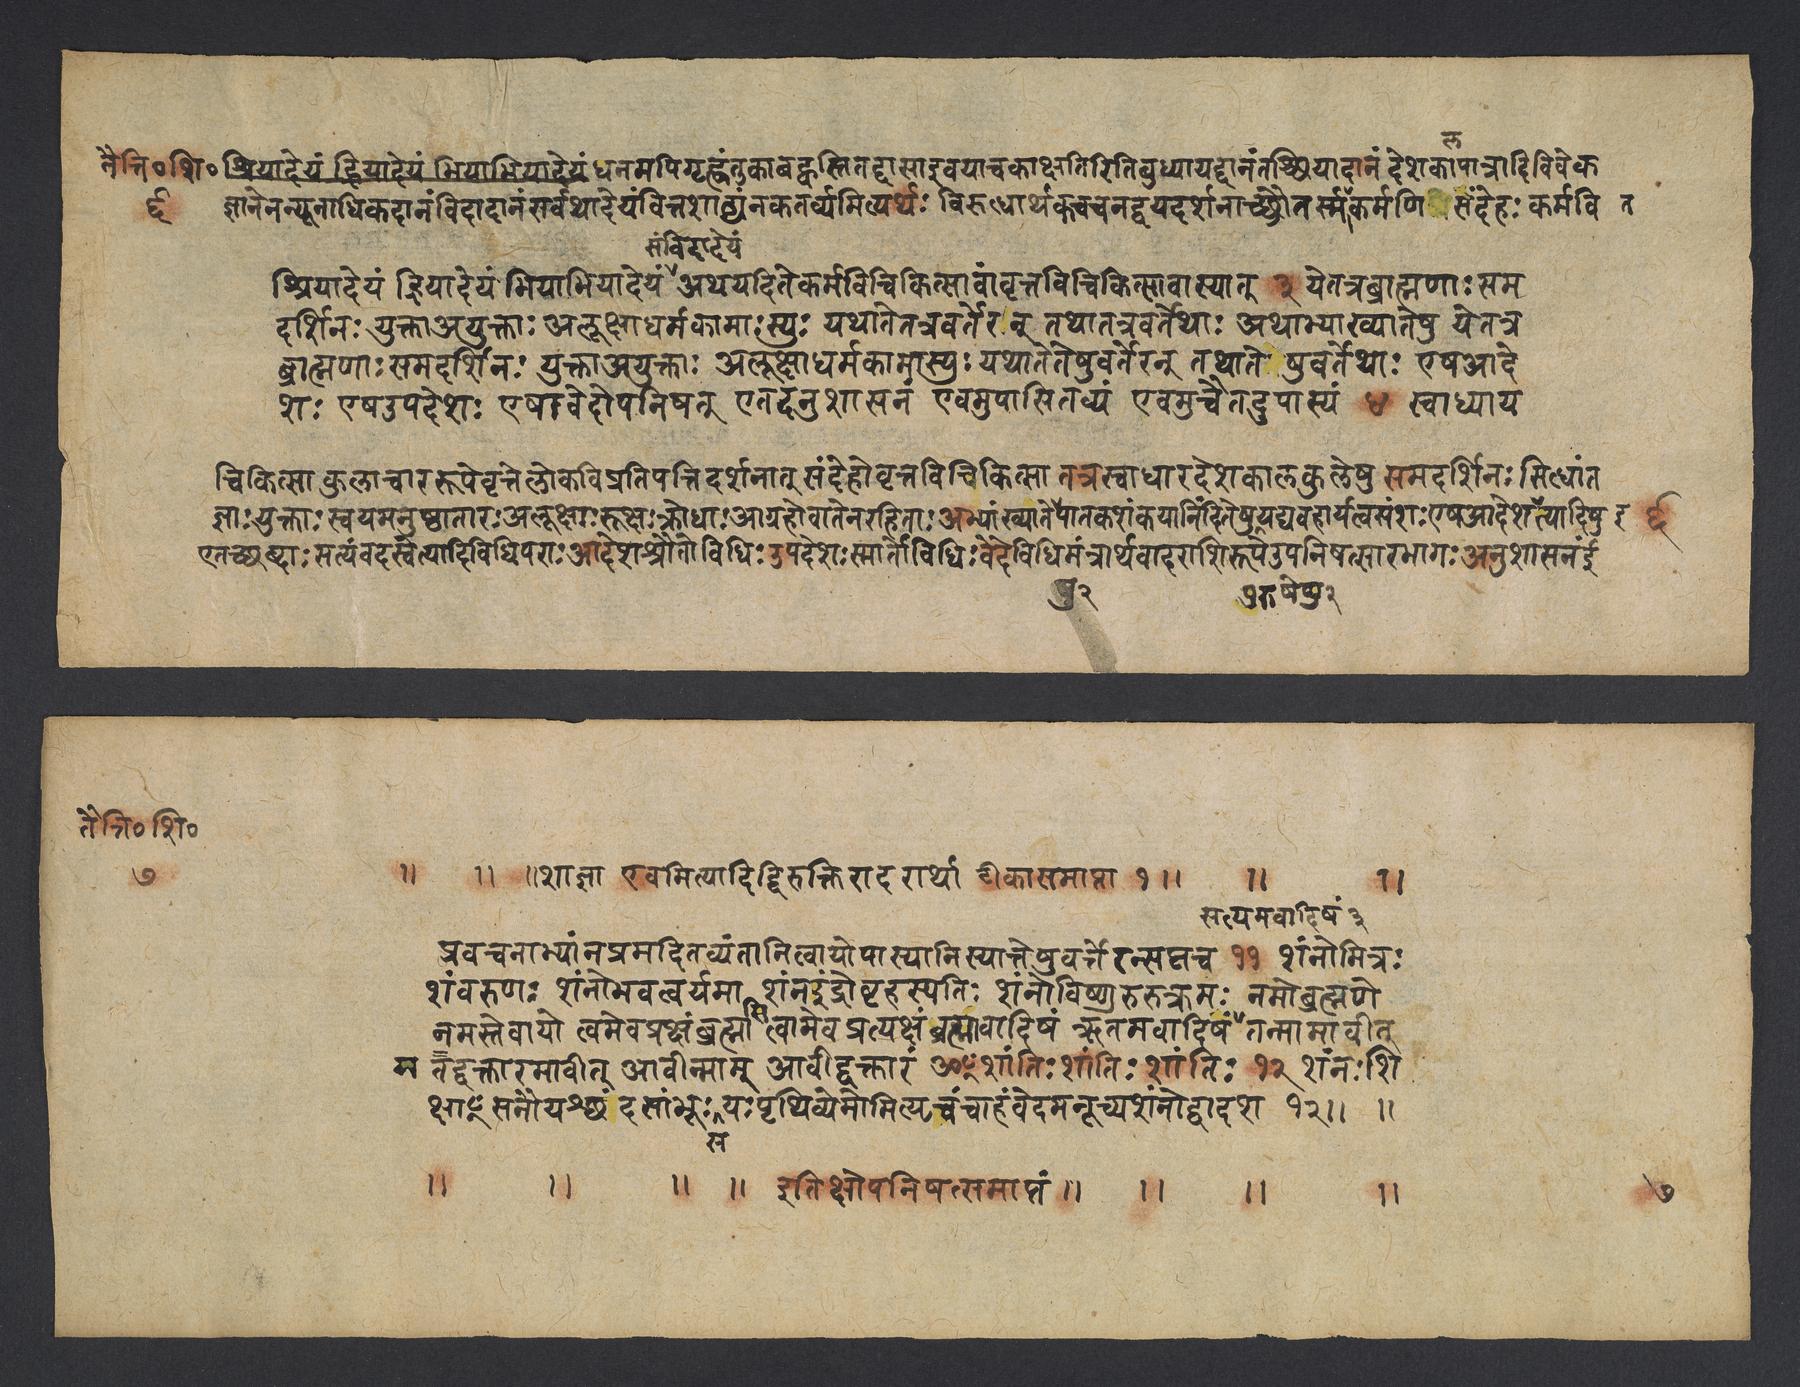 तैत्ति०शि० श्रियादेयं ह्रियादेयं भियाभियादेयं धनमपिगृह्णंतु तद्दासाइवयाचका बुध्यायद्दानंतच्छ्रियादानं देशकालपात्रादिविवेक
६ ज्ञानेनन्यूनाधिकदानंविदादानंसर्वथादेयंवित्तशाठ्यंनकर्तव्यमित्यर्थः विरुध्धार्थकवचनद्वयदर्शनाच्छ्रौतस्मर्तकर्मणि संदेहः कर्मवि
संविदादेयं
श्रियादेयं ह्रियादेयं भियाभियादेयं अथयदितेकर्मविचिकित्सावावृत्तविचिकित्सावास्यात् ३ येतत्रब्राह्मणाः सम
दर्शिनः युक्ताअयुक्ताः अलूक्षाधर्मकामाःस्युः यथातेतत्रवर्तेरन् तथातत्रवर्तेथाः अथाभ्याख्यातेषु येतत्र
ब्राह्मणाः समदर्शिनः युक्ताअयुक्ताः अलूक्षाधर्मकामास्युः यथातेतेषुवर्तेरन् तथातेषुवर्तेथाः एषआदे
शः एषउपदेशः एषावेदोपनिषत् एतदनुशासनं एवमुपासितव्यं एवमुचैतदुपास्यं ४ स्वाध्याय
चिकित्सा कुलाचाररूपेवृत्तेलोकविप्रतिपत्तिदर्शनात् संदेहोवृत्तविचिकित्सा तत्रस्वाधारदेशकालकुलेषु समदर्शिनः सिध्धांत
ज्ञाः युक्ताः स्वयमनुष्ठातारः अलूक्षाः रूक्षः क्रोधाः आग्रहोवातेनरहिताः अभ्याख्याते पातकशंकयानिंदितेषु यद्यवहार्यत्वमंशः एषआदेश त्यादिषु इ ६
एतच्छब्दाः सत्यंवदस्वेत्यादिविधिपराः आदेशःश्रौतोविधिः उपदेशः स्मार्तोविधिः वेदेविधिमंत्रार्थवादराशिरूपेउपनिषत्सारभागः अनुशासनंई
षु२ पुरुषेषु२
तैत्ति०शि०
७ ॥ ॥ ॥शाज्ञा एवमित्यादिद्विरुक्तिरादरार्था टीकासमाप्ता १॥ ॥ ॥
सत्यमवादिषं ३
प्रवचनाभ्यांनप्रमदितव्यंतानित्वायोपास्यानिस्यात्तेषुवर्त्तेरन्सप्तच ११ शंनोमित्रः
शंवरुणः शंनोभवत्वर्यमा शंनइंद्रोवृहस्पतिः शंनोविष्णुरुरुक्रमः नमोब्रह्मणे
नमस्तेवायो त्वमेवप्रत्यक्षंब्रह्मासि त्वामेवप्रत्यक्षंब्रह्मावादिषं ऋतमवादिषं तन्मामावीत्
म तद्वक्तारमावीत् आवीन्माम् आवीद्वक्तारं ॐशांतिः शांतिः शांतिः १२ शंनः शि
क्षा सनौयश्छंदसांभूः सयः पृथिव्योमोमित्यृचंचाहंवेदमनूच्यशंनोद्वादश १२॥ ॥
॥ ॥ ॥ ॥ इतिक्षोपनिषत्समाप्तं ॥ ॥ ॥ ॥ ७